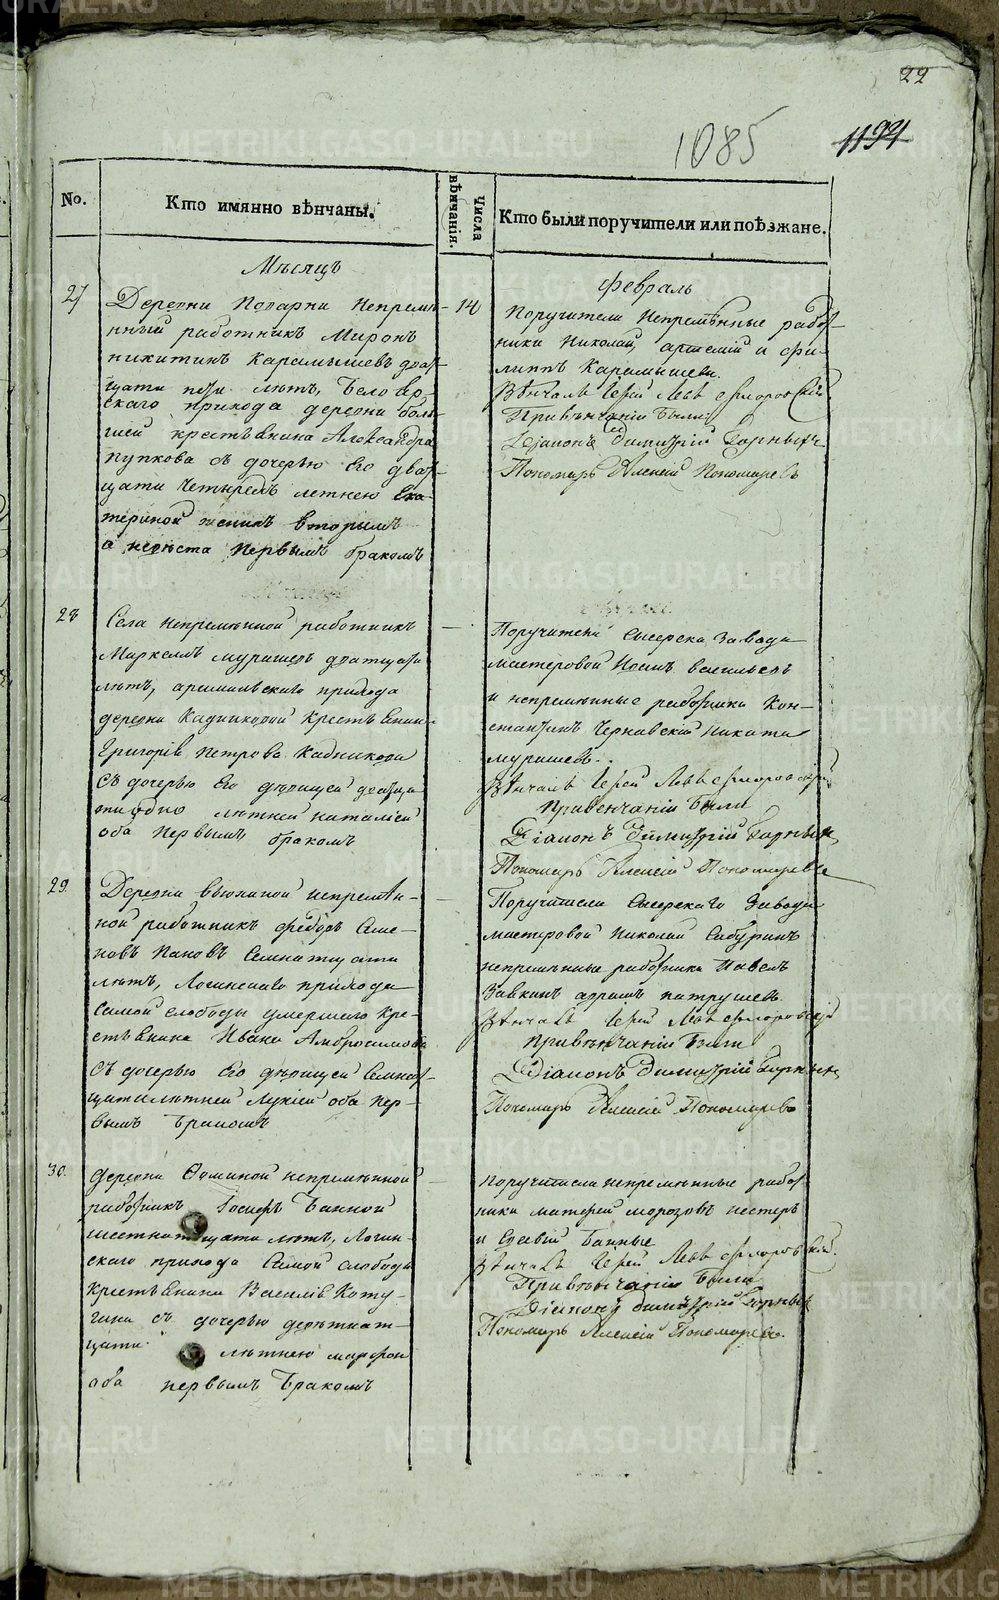 22
1085
1194
No.
Кто имянно вѣнчаны.
Числа вѣнчанія.
Кто были поручители или поѣзжане.
Мѣсяцъ
Февраль
27
Деревни Поварни Непремѣ-
нный работникъ Миронъ
никитинъ Карамышевъ дват-
цати пяти лѣтъ, Бело яр-
скаго прихода деревни боль-
шей крестьянина Александра
пупкова съ дочерью Его дват-
цати Четырехъ летнею Ека-
териной женихъ вторымъ
а невѣста первымъ бракомъ
14
Поручители Непремѣнные работ-
ники Николай, артемій и фи-
липпъ Карамышевы
Вѣнчалъ Іерей Левъ Флоровскій
Привѣнчаніи были
Діаконъ Димитрій Горныхъ
Пономарь Алексий Пономаревъ
28
Села непремѣнной работникъ
Маркеллъ мурашевъ дватцати
лѣтъ, арамильскаго прихода
деревни Кадниковой Крестьянина
Григорія Петрова Кадникова
съ дочерью Его дѣвицей дватца
ти одно лѣтней наталіей
оба первымъ бракомъ
Поручители Сысерска Завода
мастеровой Иосипъ васильевъ
и непремѣнные работники Кон-
стантинъ Чернавскій Никита
мурашевъ.
Вѣнчалъ Іерей Левъ Флоровскій
Привенчаніи были
Діаконъ Димитрій Горныхъ
Пономарь Алексій Пономаревъ
29.
Деревни вьюхиной непремѣн-
ной работникъ федоръ Семе-
новъ Пановъ Семнатцати
лѣтъ, Логинскаго прихода
самой слободы умершаго кре-
стьянина Ивана Амвросимова
съ дочерью Его дѣвицей Семнат-
цатилѣтней Лукіей оба пер-
вымъ бракомъ
Поручители Сысерскаго Завода
мастеровой Николай Сабуринъ
непремѣнные работники Павелъ
Завкинъ аврамъ патрушевъ
Вѣнчалъ Іерей Левъ Флоровскій
привѣнчаніи были
Діаконъ Димитрій Горныхъ
Пономарь Алексій Пономаревъ
30.
деревни Фоминой непремѣнной
работникъ Іосифъ Банной
шестнатцати лѣтъ, Логин-
скаго прихода Самой слободы
крестьянина Василія Коту-
гина съ дочерью девятнат-
цати лѣтнею марфой
оба первымъ бракомъ
поручители непремѣнные работ
ники матфей морозовъ нестеръ
и Савій Банные
Вѣнчалъ Іерей Левъ Флоровскій.
Привѣнчаніи были
Діаконъ Димитрій Горныхъ
Пономарь Алексій Пономаревъ.
METRIKI.GASO-URAL.RU